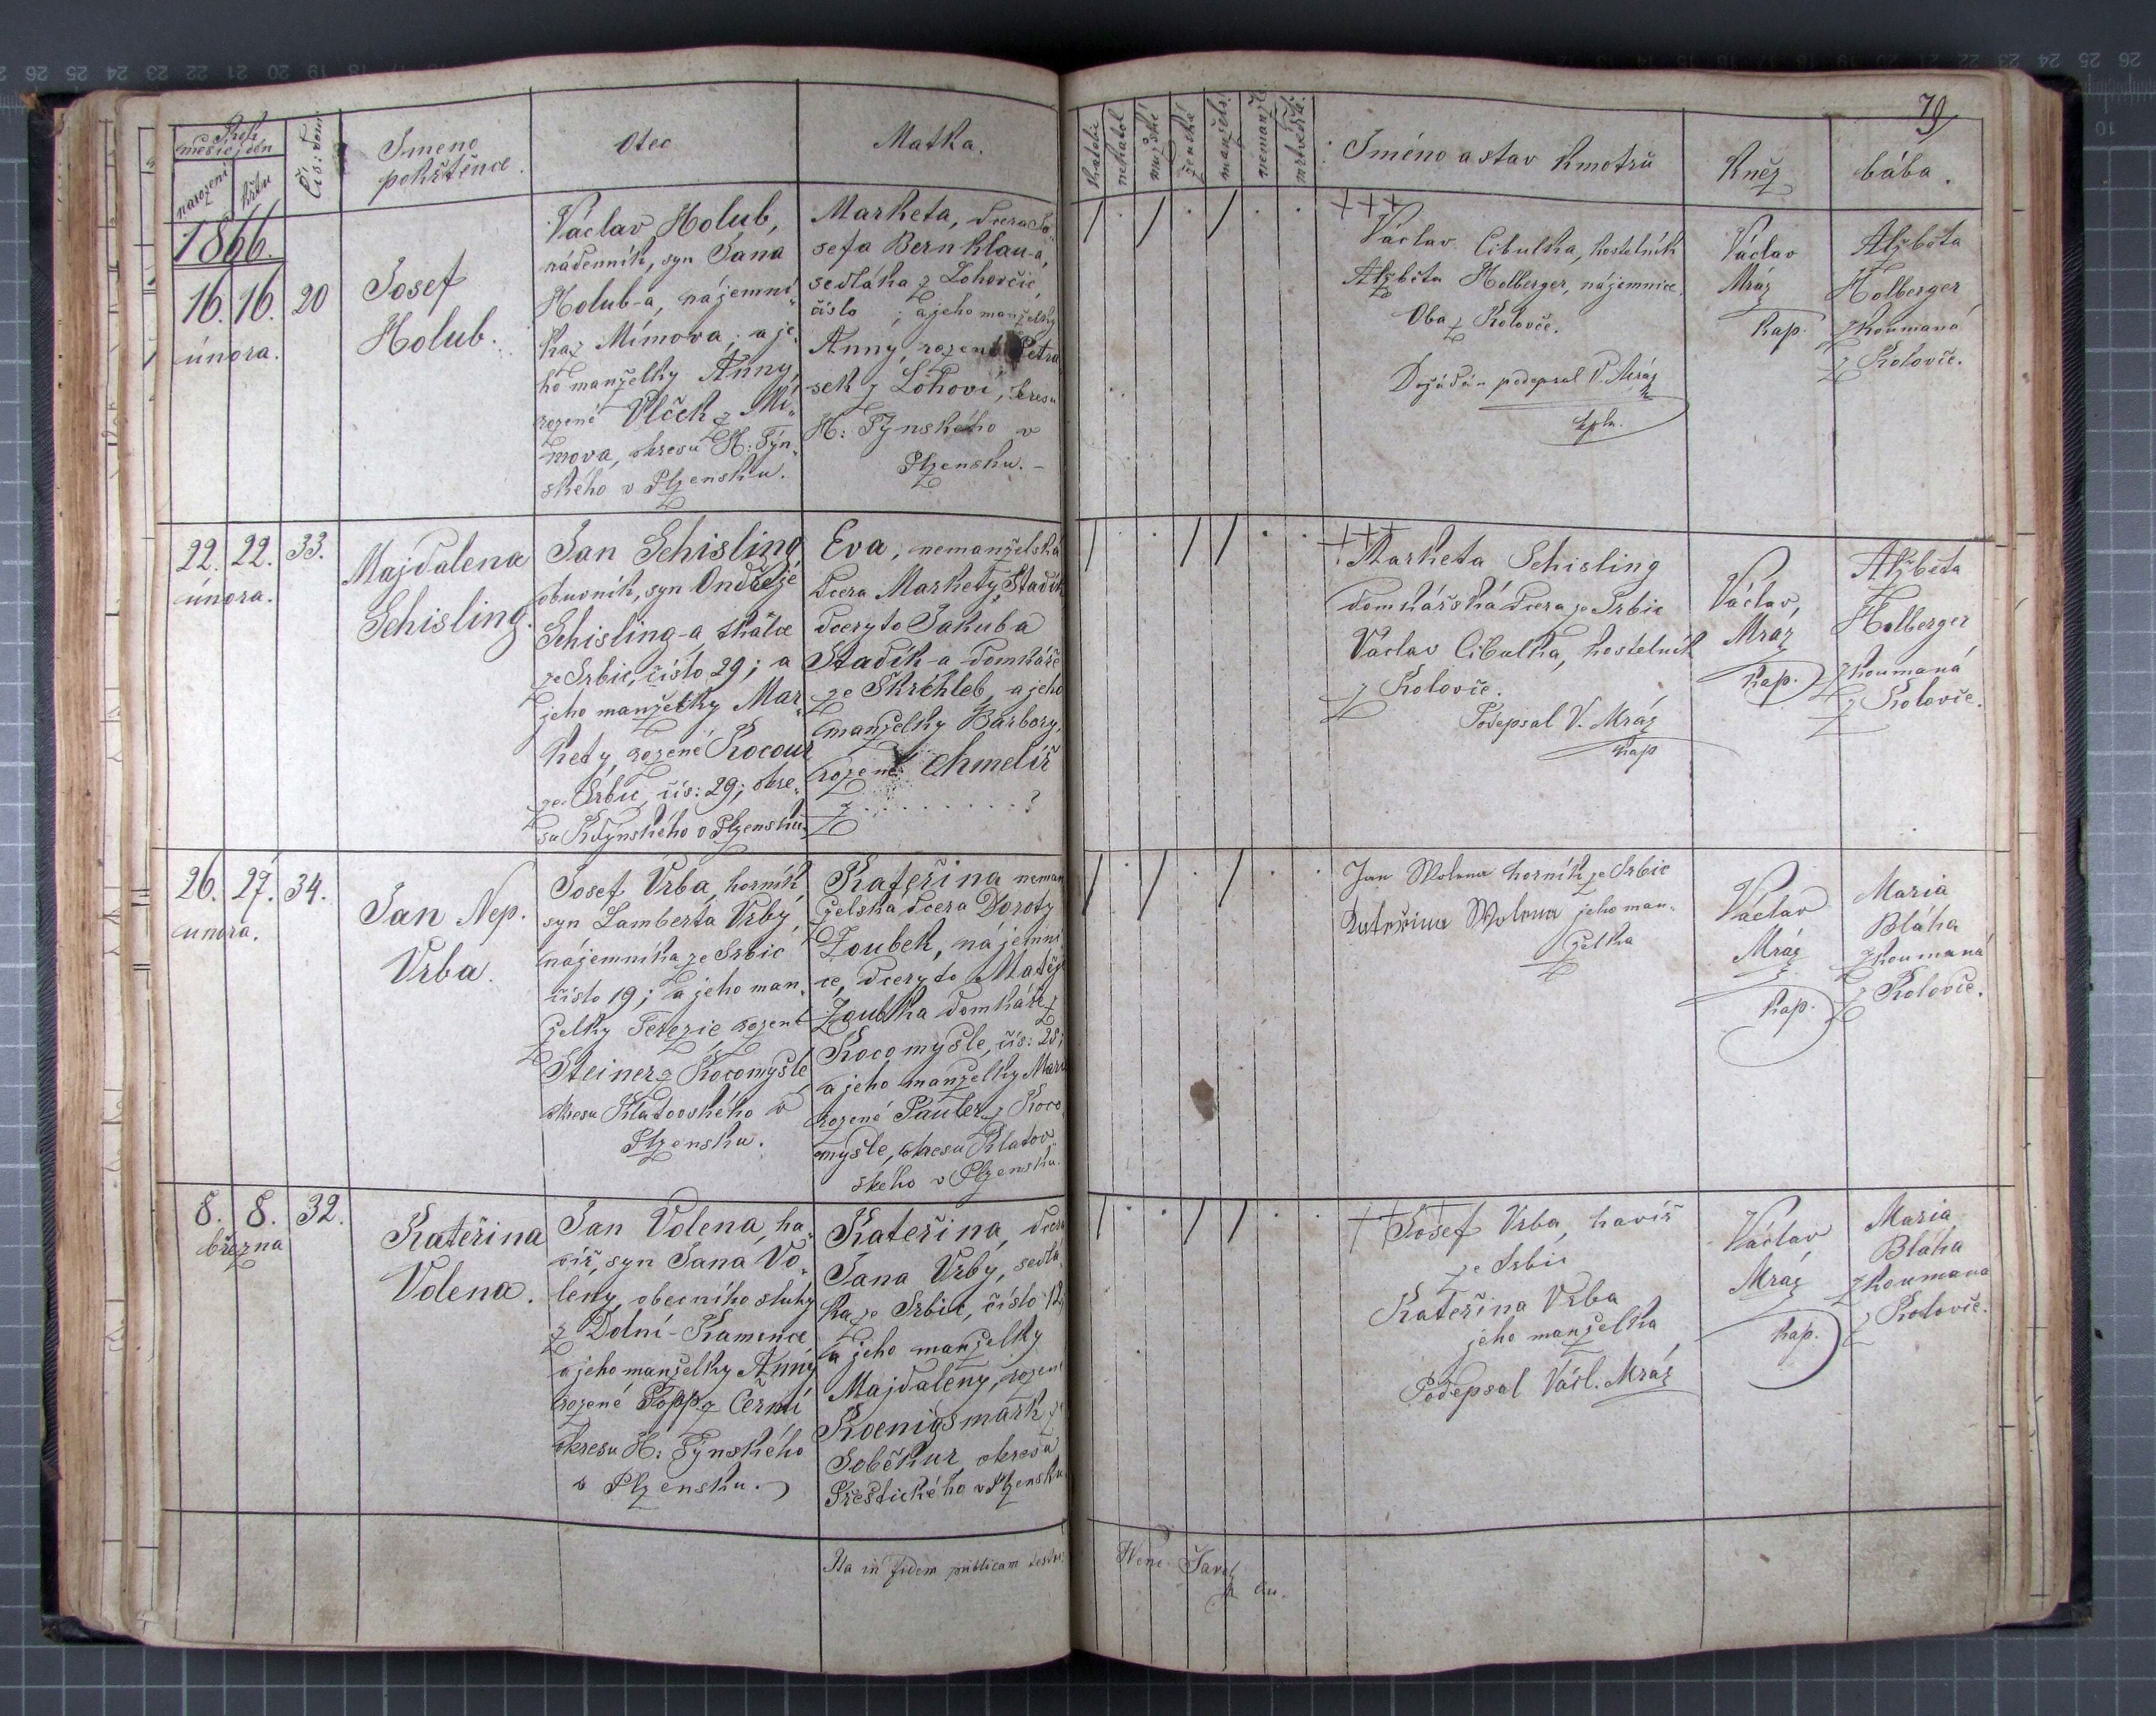 79
Rok
měsíc, den
narození
křtu
Čís: dom
Jmeno
pokřtěnce.
Otec
Matka.
Katolic
nekatol
mužské
ženské
manžels.
nemanžel
mrtvě
Jméno a stav kmotrů
Kněz
bába.
1866.
16. 16. 20
února.
Josef
Holub.
Václav Holub,
nádenník, syn Jana
Holub-a, nájemní-
ka z Mímova, a je-
ho manželky Anny,
rozené Vlček z Mí-
mova, okresu H: Týn-
ského v Plzensku.
Marketa, dcera Jo-
sefa Bernklau-a,
sedláka z Lohovčic,
číslo ; a jeho manželky
Anny, rozené Petra
sek z Lohovi, okresu
H: Týnského v
Plzensku. -
+++
Václav Cibulka, kostelník
Alžběta Holberger, nájemnice,
Oba z Kolovče.
Dožádán podepsal V. Mráz
kpln.
Václav
Mráz
kap.
Alžběta
Holberger
zkoumaná
z Kolovče.
22. 22. 33.
února.
Majdalena
Schisling.
Jan Schisling
obuvník, syn Ondřeje
Schisling-a tkálce
ze Srbic, číslo 29; a
jeho manželky Mar-
kety, rozené Kocour
ze Srbic, čís: 29; okre-
su Kdynského v Plzensku.
Eva, nemanželská
dcera Markety Stadik
dcery to Jakuba
Stadik-a domkáře
ze Skrchleb, a jeho
manželky Barbory,
rozené Chmelíř
z . . . . . . . . . ?
+++
Marketa Schisling
domkářská dcera ze Srbic
Václav Cibulka, kostelník
z Kolovče.
Podepsal V. Mráz
kap
Václav,
Mráz
kap.
Alžběta
Holberger
zkoumaná
z Kolovče.
26. 27. 34.
února.
Jan Nep.
Vrba.
Josef Vrba, horník,
syn Lamberta Vrby,
nájemníka ze Srbic
číslo 19; a jeho man-
želky Terezie rozené
Steiner z Kocomyšle,
okresu Klatovského v
Plzensku.
Kateřina neman
želská dcera Doroty
Zoubek, nájemni
ce, dcery to Matěje
Zoubka domkáře z
Kocomyšle, čís: 25;
a jeho manželky Marie
rozené Pauler z Koco
myšle, okresu Klatov
ského v Plzensku.
Jan Wolena horník ze Srbic
Kateřina Wolena jeho man-
želka
Václav
Mráz
kap.
Maria
Bláha
zkoumaná
z Kolovče.
8. 8. 32.
března
Kateřina
Volena.
Jan Volena, ha-
víř, syn Jana Vo-
leny, obecního sluhy
z Dolní-Kamenice
a jeho manželky Anny
rozené Topp z Černí
okresu H: Týnského
v Plzensku.
Kateřina, dcera
Jana Vrby, sedlá
ka ze Srbic, číslo 12;
a jeho manželky
Majdaleny, rozené
Koenigsmark ze
Soběkur, okresu
Přestického v Plzensku
+++
Josef Vrba havíř
ze Srbic
Kateřina Vrba
jeho manželka
Podepsal Václ. Mráz
Václav
Mráz
kap.
Maria
Bláha
zkoumana
z Kolovče.
Ita in fidem publicam testor: